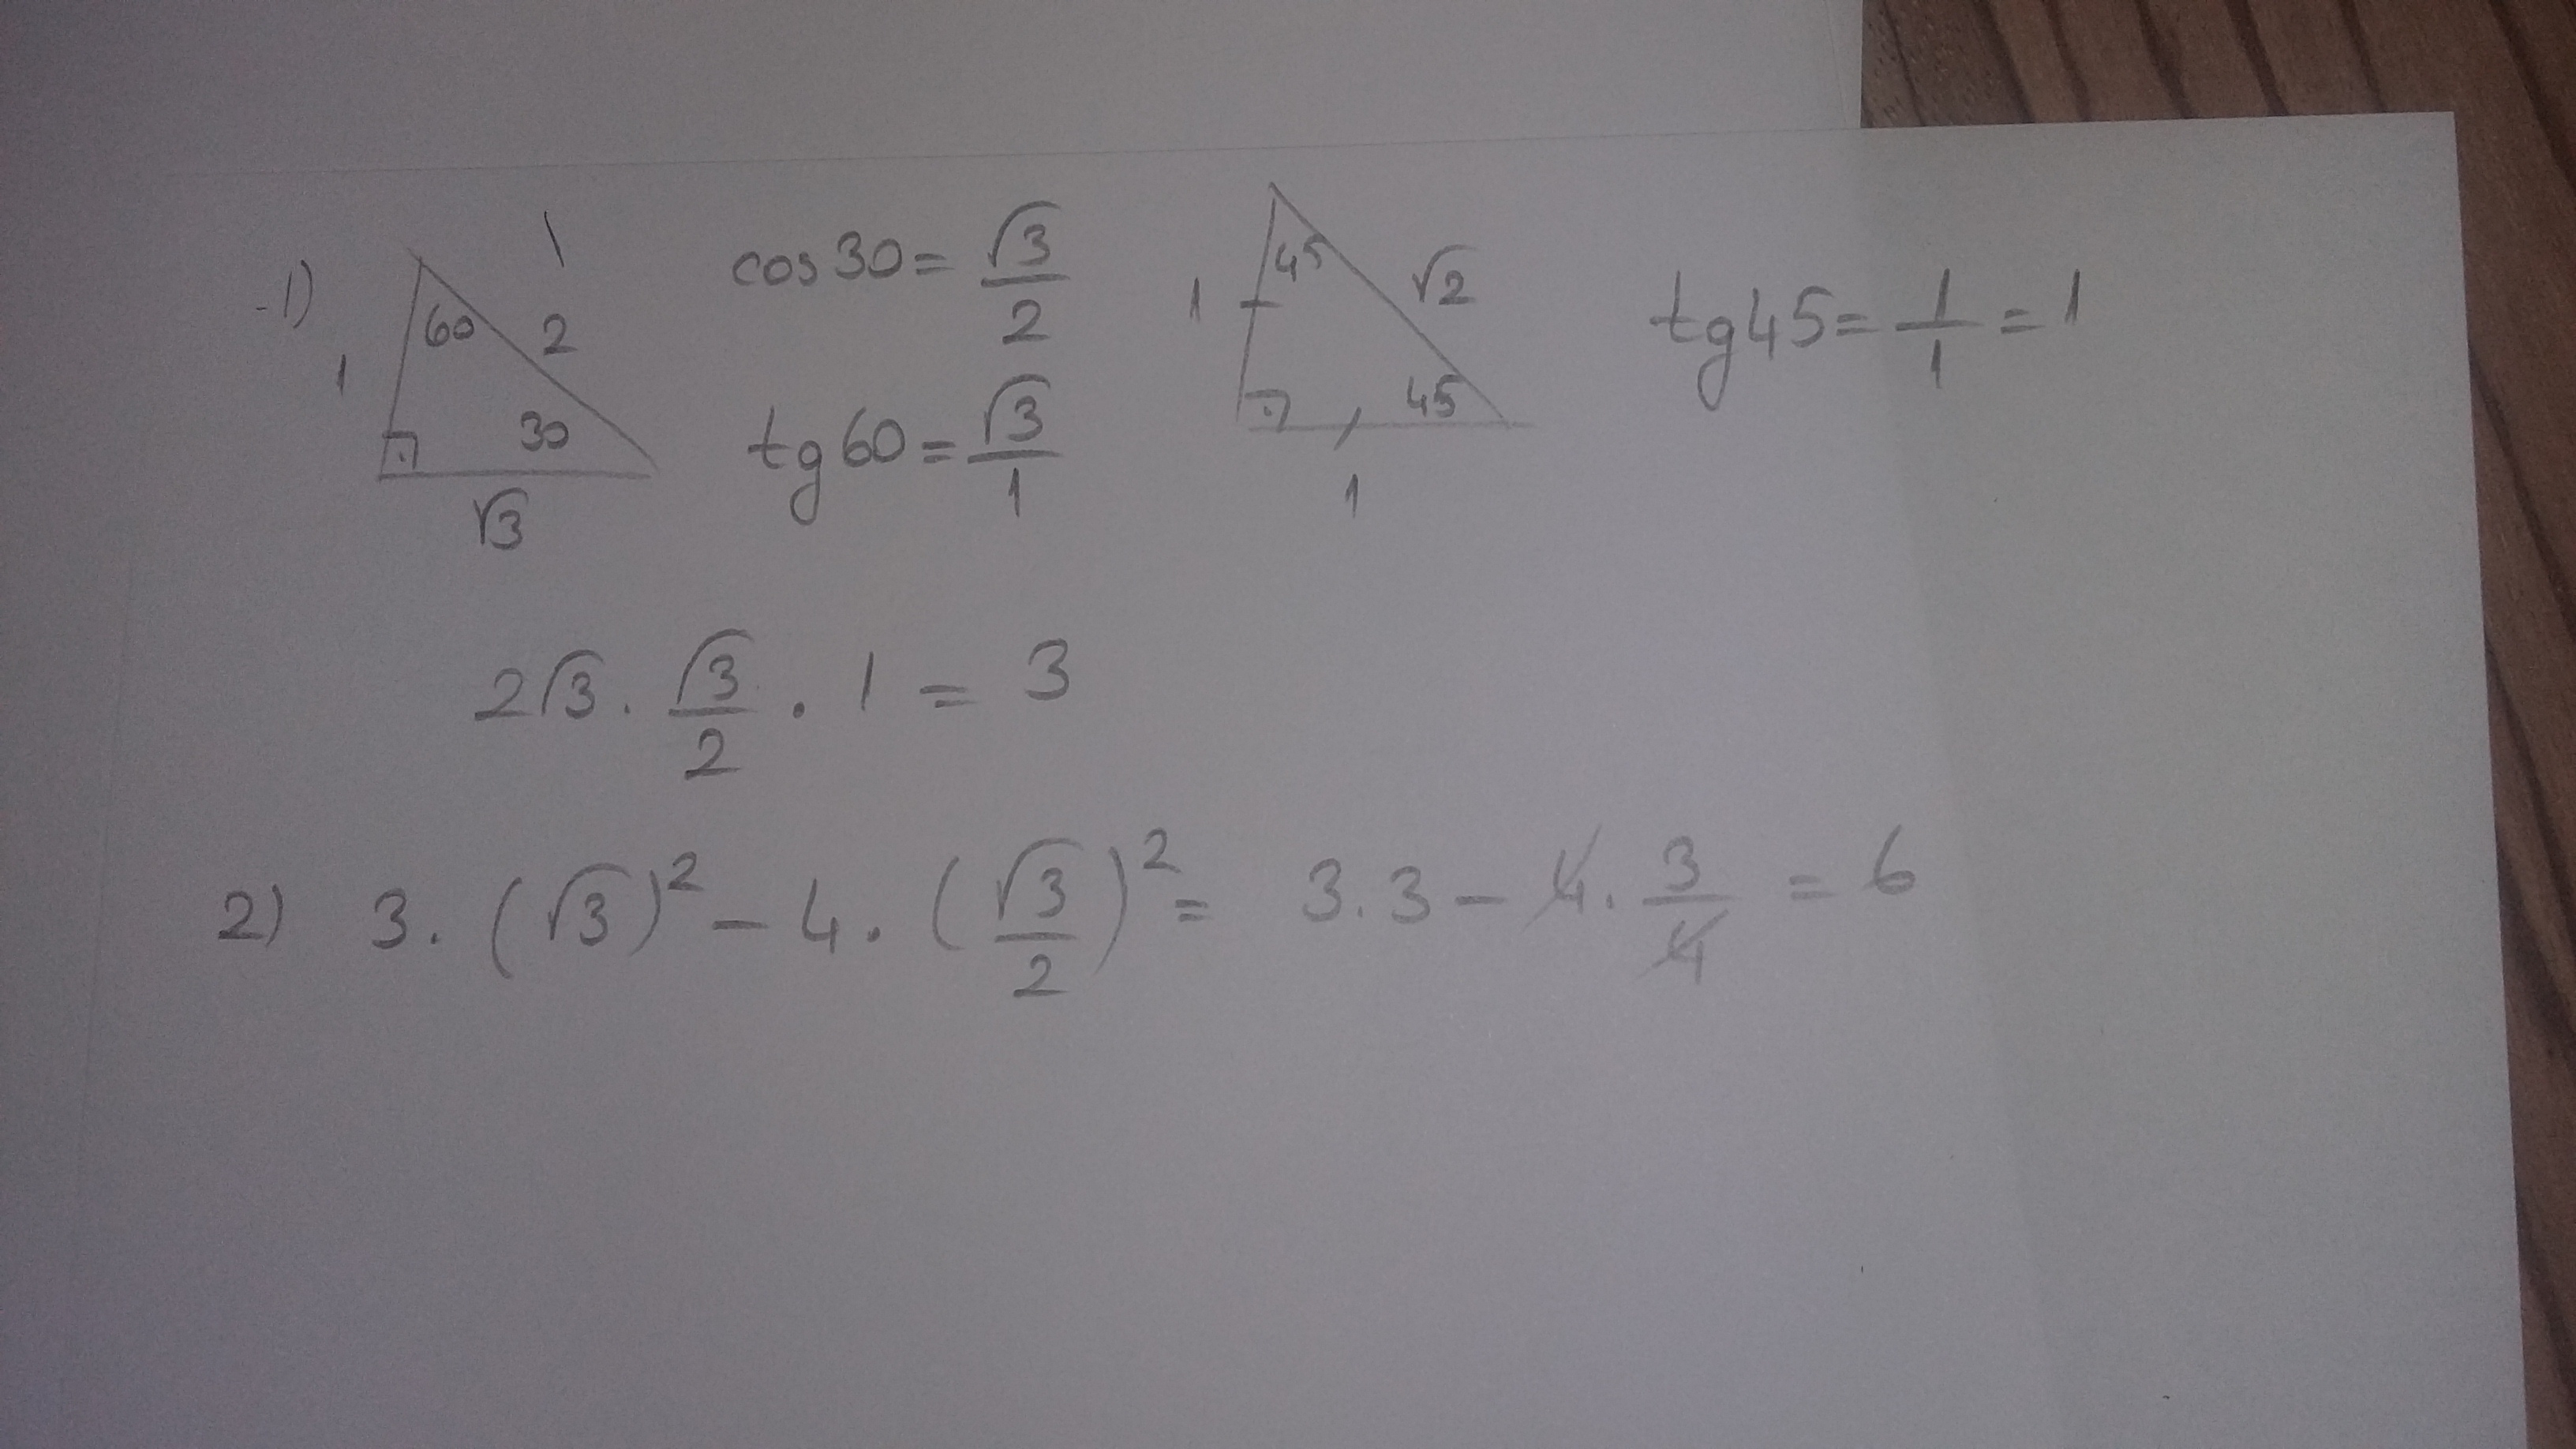 1)
60
2
1
30
√3
cos30 = √3/2
tg60 = √3/1
45
√2
1
45
1
tg45 = 1/1 = 1
2√3 . √3/2 . 1 = 3
2) 3 . (√3)² - 4 . (√3/2)² = 3.3 - 4 . 3/4 = 6